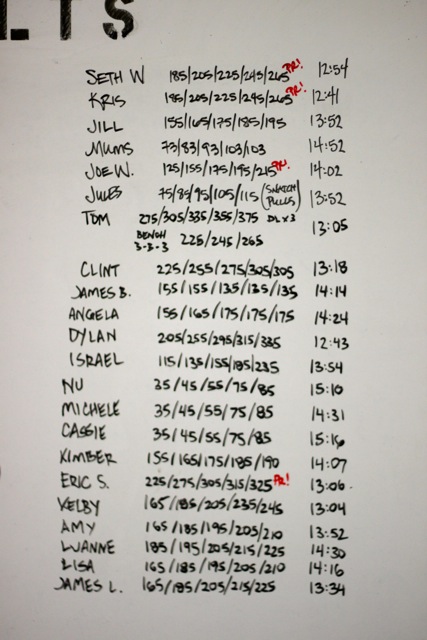 LTS
SETH W 185/205/225/245/265 PR! 12:54
KRIS 185/205/225/245/265 PR! 12:41
JILL 155/165/175/185/195 13:52
MUMS 73/83/93/103/103 14:52
JOE W. 125/155/175/195/215 PR! 14:02
JULES 75/85/95/105/115 (SNATCH PULLS) 13:52
TOM 275/305/335/355/375 DL x3 13:05
BENCH 3-3-3 225/245/265
CLINT 225/255/275/305/305 13:18
JAMES B. 155/155/135/135/135 14:14
ANGELA 155/165/175/175/175 14:24
DYLAN 205/255/295/315/335 12:43
ISRAEL 115/135/155/185/235 13:54
NU 35/45/55/75/85 15:10
MICHELE 35/45/55/75/85 14:31
CASSIE 35/45/55/75/85 15:16
KIMBER 155/165/175/185/190 14:07
ERIC S. 225/275/305/315/325 PR! 13:06
KELBY 165/185/205/235/245 13:04
AMY 165/185/195/205/210 13:52
LUANNE 185/195/205/215/225 14:30
LISA 165/185/195/205/210 14:16
JAMES L. 165/185/205/215/225 13:34